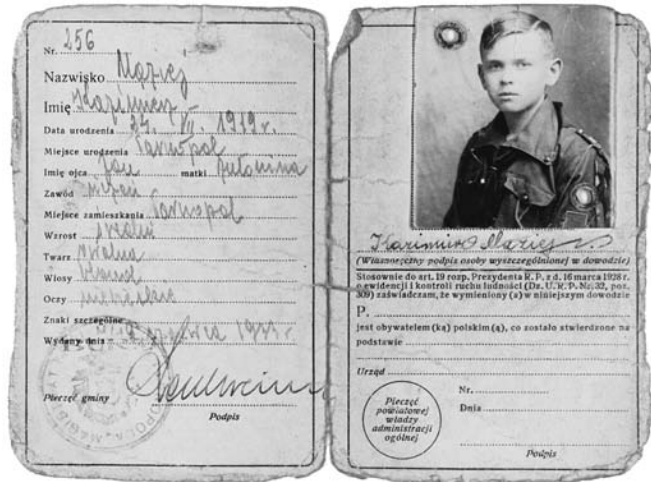 Nr. 256
Nazwisko Maziej
Imię Kazimierz
Data urodzenia 24. VII. 1919 r.
Miejsce urodzenia Tarnopol
Imię ojca Jan matki
Zawód
Miejsce zamieszkania Tarnopol
Wzrost średni
Twarz owalna
Włosy blond
Oczy niebieskie
Znaki szczególne
Wydany dnia czerwca
Pieczęć gminy
Podpis
Kazimierz Maziej
(Własnoręczny podpis osoby wyszczególnionej w dowodzie)
Stosownie do art. 19 rozp. Prezydenta R. P. z d. 16 marca 1928 r.
o ewidencji i kontroli ruchu ludności (Dz. U. R. P. Nr. 32, poz.
309) zaświadczam, że wymieniony (a) w niniejszym dowodzie
P.
jest obywatelem (ką) polskim (ą), co zostało stwierdzone na
podstawie
Urząd
Pieczęć
powiatowej
władzy
administracji
ogólnej
Nr.
Dnia
Podpis